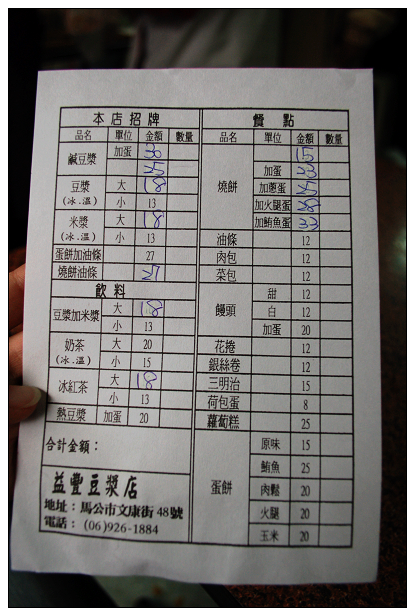 本店招牌
品名 單位 金額 數量
鹹豆漿 加蛋 30
25
豆漿 (冰.溫) 大 18
小 13
米漿 (冰.溫) 大 18
小 13
蛋餅加油條 27
燒餅油條 27
飲料
豆漿加米漿 大 18
小 13
奶茶 (冰.溫) 大 20
小 15
冰紅茶 大 18
小 13
熱豆漿 加蛋 20
合計金額:
益豐豆漿店
地址:馬公市文康街48號
電話: (06)926-1884
餐點
品名 單位 金額 數量
燒餅 15
加蛋 23
加蔥蛋 25
加火腿蛋 28
加鮪魚蛋 33
油條 12
肉包 12
菜包 12
饅頭 甜 12
白 12
加蛋 20
花捲 12
銀絲卷 12
三明治 15
荷包蛋 8
蘿蔔糕 25
蛋餅 原味 15
鮪魚 25
肉鬆 20
火腿 20
玉米 20